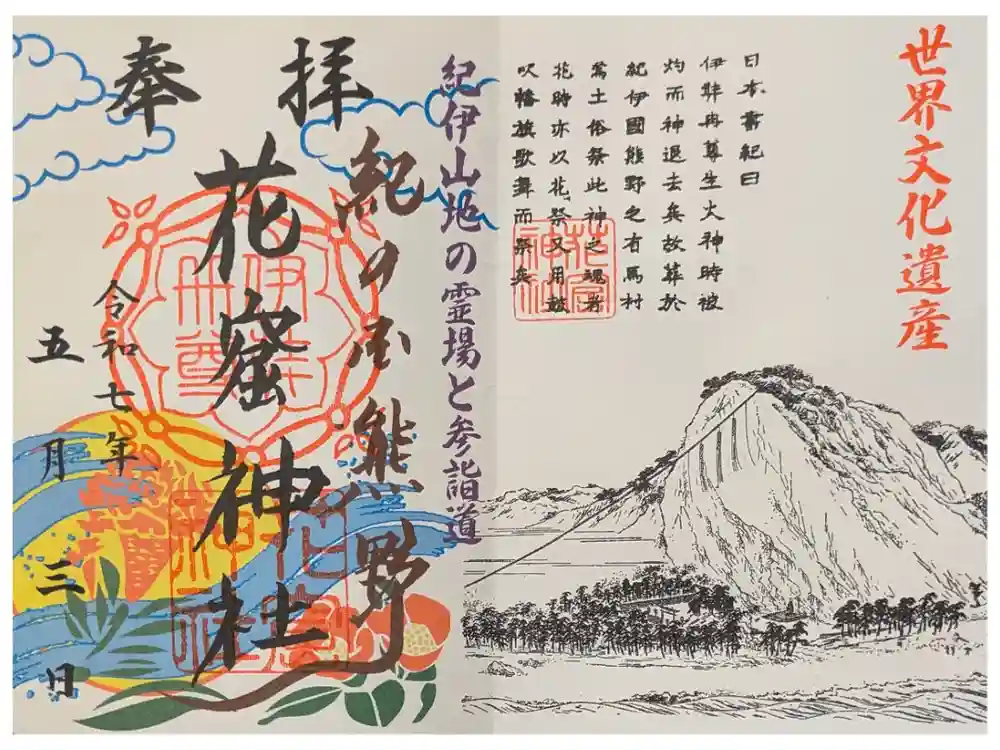 世界文化遺産
日本書紀曰
伊弉冉尊生火神時被
灼而神退去矣故葬於
紀伊國熊野之有馬村
焉土俗祭此神之魂者
花時亦以花祭又用鼓
吹幡旗歌舞而祭矣
花窟
神社
紀伊山地の霊場と参詣道
奉拝
紀の国熊野
花窟神社
伊弉
冉尊
花窟
神社
令和七年
五月三日